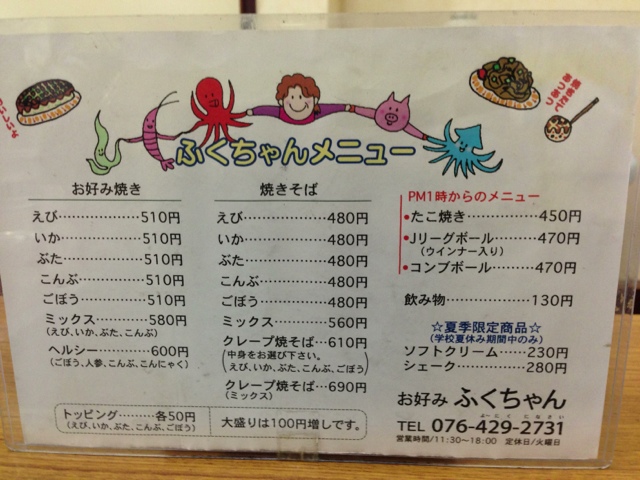 ふくちゃんメニュー
お好み焼き
えび………………510円
いか………………510円
ぶた………………510円
こんぶ……………510円
ごぼう……………510円
ミックス…………580円
(えび、いか、ぶた、こんぶ)
ヘルシー…………600円
(ごぼう、人参、こんぶ、こんにゃく)
焼きそば
えび………………480円
いか………………480円
ぶた………………480円
こんぶ……………480円
ごぼう……………480円
ミックス…………560円
クレープ焼そば…610円
(中身をお選び下さい。
えび、いか、ぶた、こんぶ、ごぼう)
クレープ焼そば…690円
(ミックス)
トッピング…………各50円
(えび、いか、ぶた、こんぶ、ごぼう)
大盛りは100円増しです。
PM1時からのメニュー
•たこ焼き……………450円
•Jリーグボール………470円
(ウインナー入り)
•コンブボール………470円
飲み物………………130円
☆夏季限定商品☆
(学校夏休み期間中のみ)
ソフトクリーム……230円
シェーク……………280円
お好み ふくちゃん
よーにく になさい
TEL 076-429-2731
営業時間/11:30~18:00 定休日/火曜日